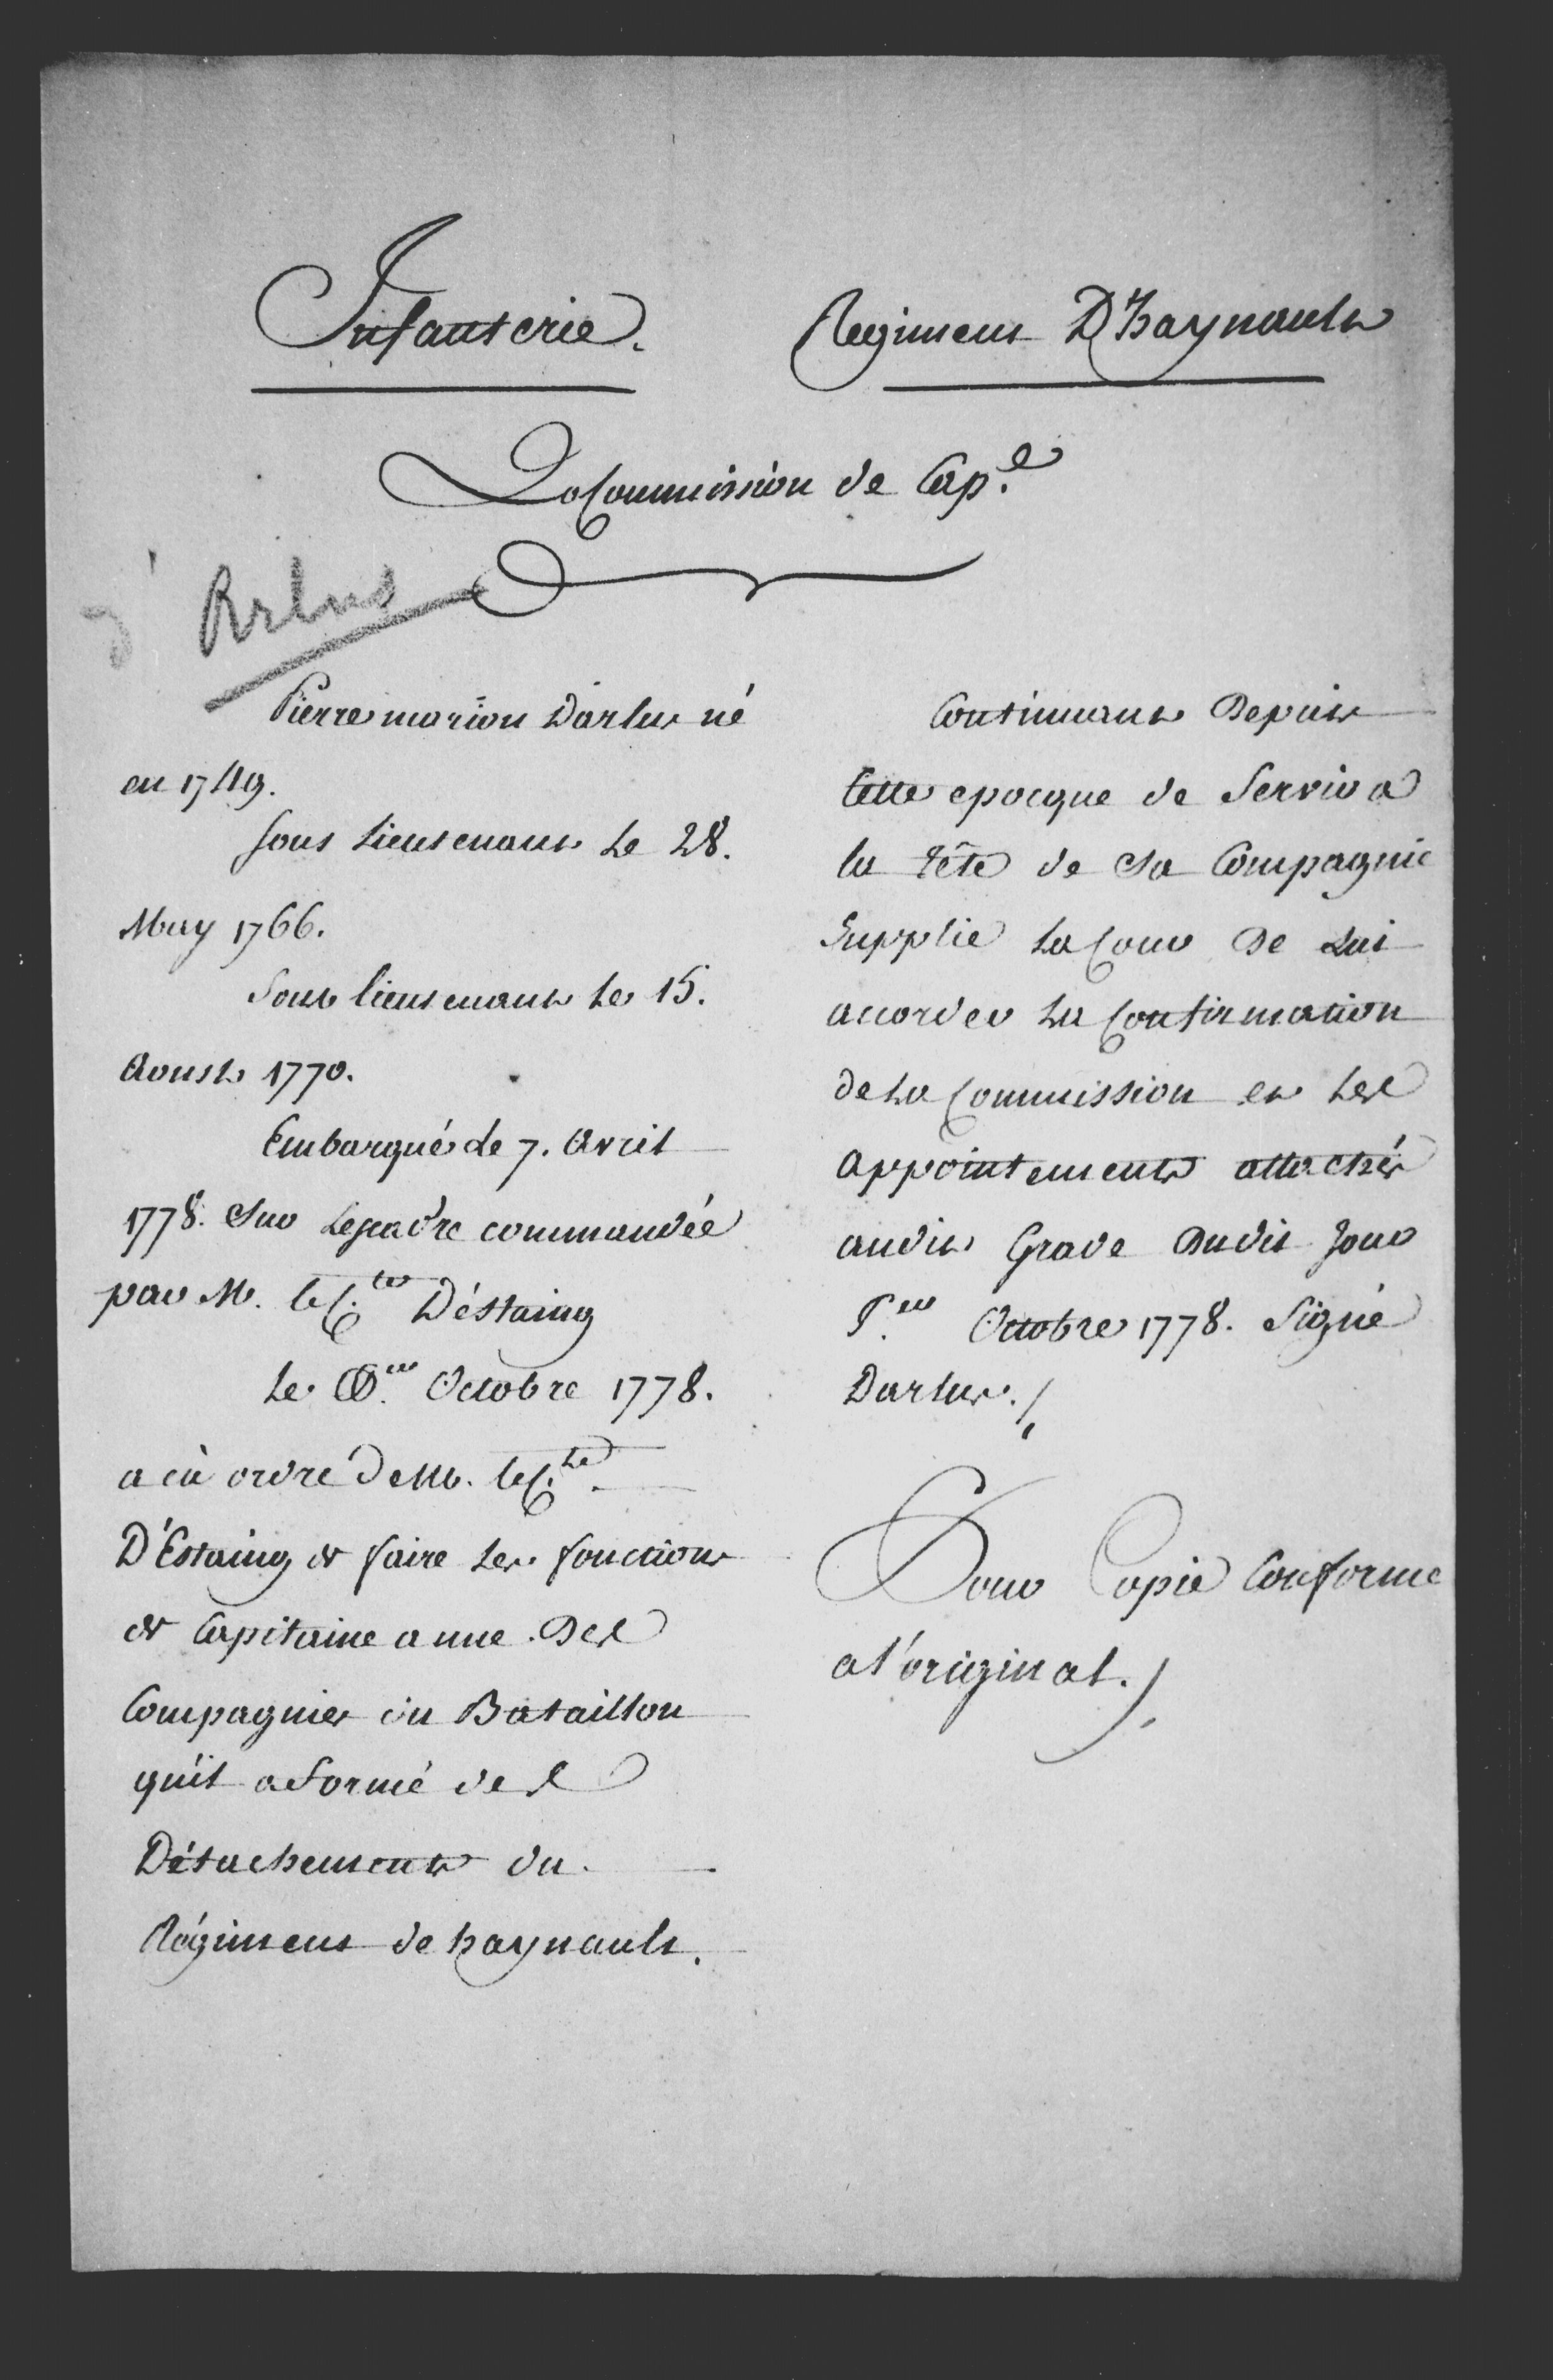 Infanterie. Régiment D'haynault
La Commission de Cap.e
d'Arlus
Pierre marion Darlus né
en 1749.
Sous Lieutenant Le 28.
May 1766.
Sous lieutenant Le 15.
Aoust 1770.
Embarqué Le 7. Avril
1778. Sur Lescadre commandée
par M. le C.te D'éstaing
Le Octobre 1778.
a eû ordre De M. le C.te
D'Estaing de faire Les fonctions
de Capitaine a une Des
Compagnies du Bataillon
qu'il a formé des
Détachements du
Régiment de haynault.
Continuant Depuis
Cette epocque de Servir a
la tête de Sa Compagnie
Supplie La Cour De Lui
accorder La Confirmation
de La Commission et Les
Appointements attachés
audit Grade Dudit Jour
P.er Octobre 1778. Signé
Darlus./.
Pour Copie Conforme
a l'original./.